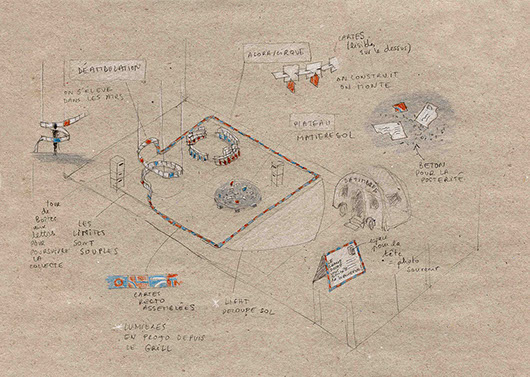 DÉAMBULATION
ON S'ELEVE
DANS LES AIRS
AGORA/CIRQUE
CARTES
(lisibles
sur le dessus)
ON CONSTRUIT
ON MONTE
PLATEAU
MATIERE SOL
BETON
POUR LA
POSTERITE
TOUR
DE
BOITES
aux
lettres
POUR
POURSUIVRE
LA
COLLECTE
LES
LIMITES
SONT
SOUPLES
pour la
tête
= photo
souvenir
CARTES
RECTO
ASSEMBLEES
LIGHT
DECOUPE SOL
LUMIERES
EN PROTO DEPUIS
LE GRILL